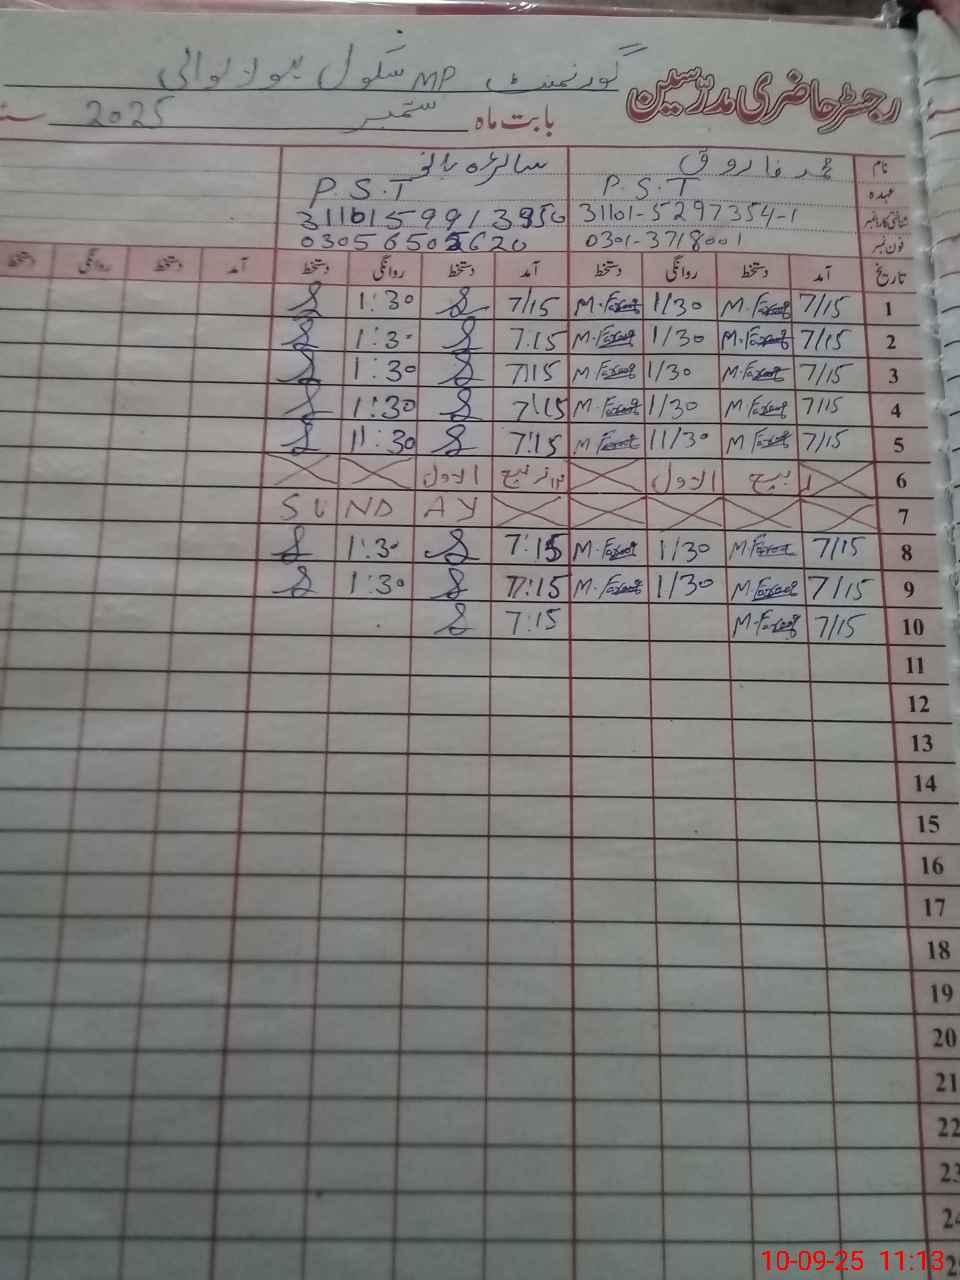 گورنمنٹ MP سکول
رجسٹر حاضری مدرسین
بابت ماہ ستمبر 2025
نام محمد فاروق سائرہ بانو
عہدہ P.S.T P.S.T
شناختی کارڈ نمبر 31101-5297354-1
فون نمبر 0301-3718001
تاریخ آمد دستخط روانگی دستخط آمد دستخط روانگی دستخط آمد دستخط روانگی دستخط
1 7/15 M.Farooq 1/30 M.Farooq 7/15 1:30
2 7/15 M.Farooq 1/30 M.Farooq 7:15 1:30
3 7/15 M.Farooq 1/30 M.Farooq 7/15 1:30
4 7/15 M.Farooq 1/30 M.Farooq 7:15 1:30
5 7/15 M Farooq 11/30 M Farooq 7:15 11:30
6 الاول الاول
7 SUNDAY
8 7/15 M.Farooq 1/30 M.Farooq 7:15 1:30
9 7/15 M.Farooq 1/30 M.Farooq 7:15 1:30
10 7/15 M.Farooq 7:15
11
12
13
14
15
16
17
18
19
20
21
22
23
24
10-09-25 11:13